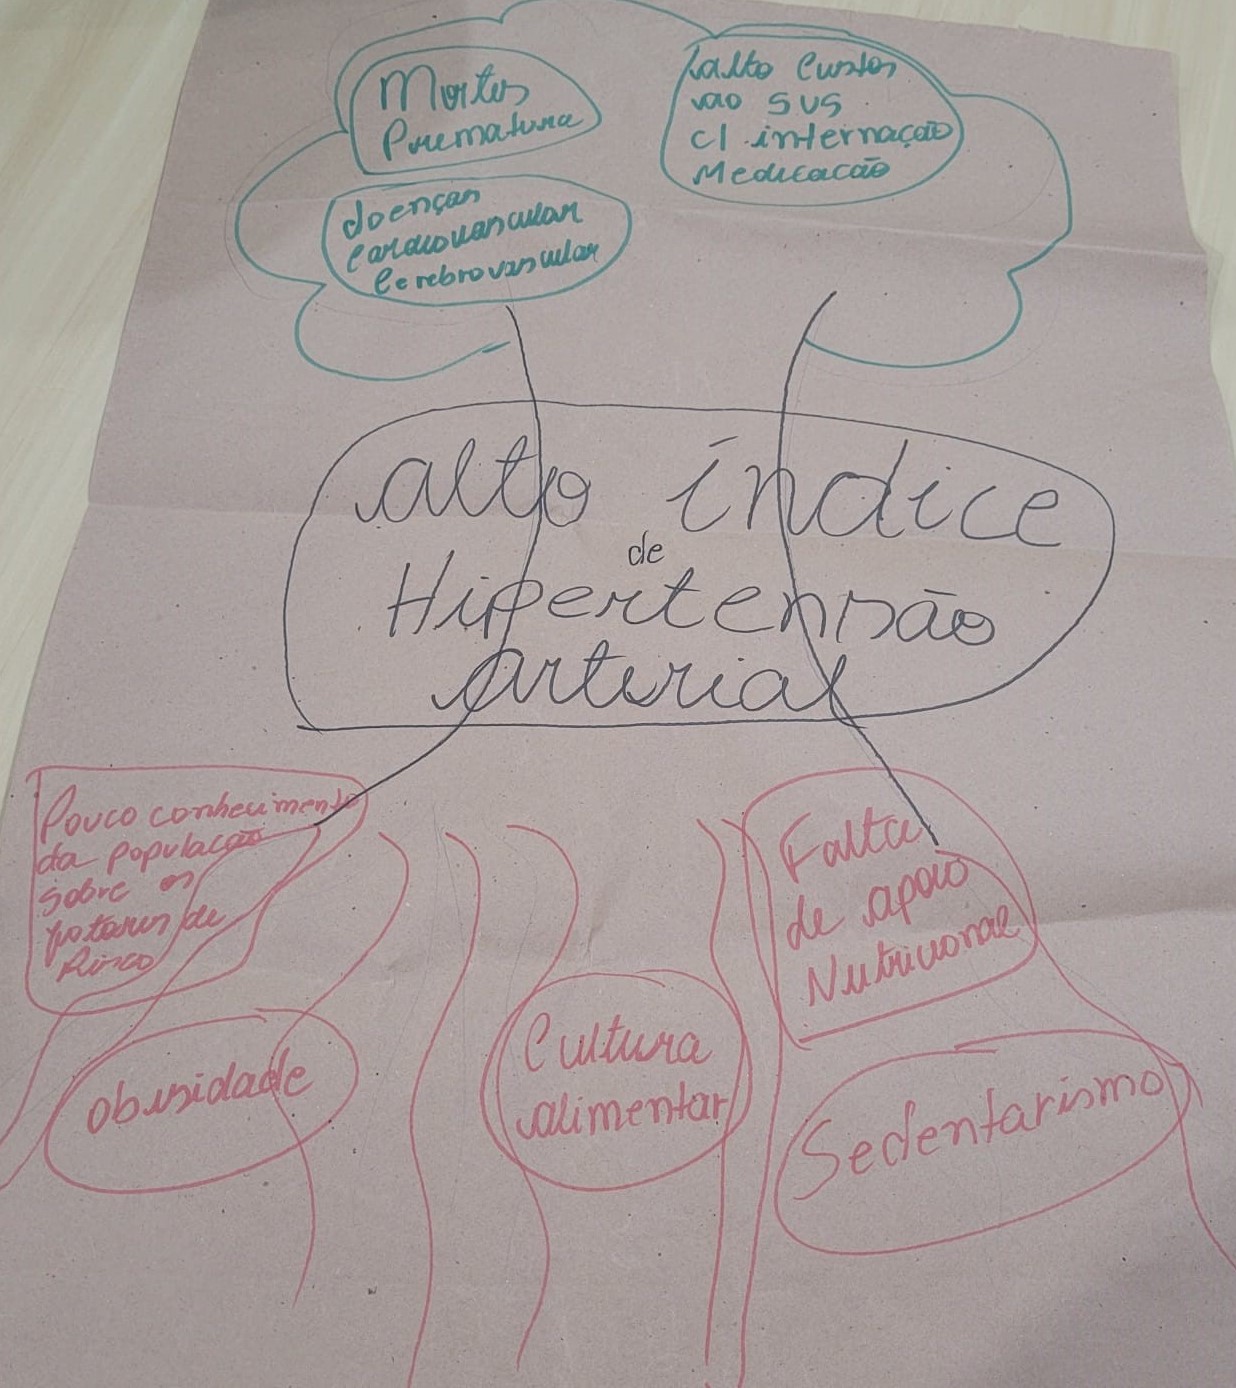 Mortes
Prematura
alto Custos
ao SUS
c/ internação
Medicacão
doenças
cardiovascular
Cerebrovascular
alto índice
de
Hipertensão
arterial
Pouco conhecimento
da população
sobre os
fatores de
Risco
Falta
de apoio
Nutricional
obesidade
Cultura
alimentar
Sedentarismo